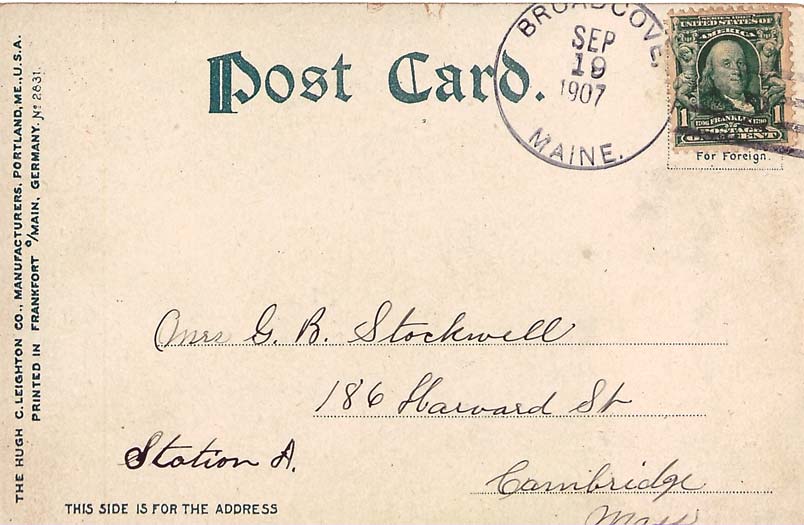 THE HUGH C. LEIGHTON CO., MANUFACTURERS, PORTLAND, ME., U.S.A.
PRINTED IN FRANKFORT o/MAIN, GERMANY. No 2831.
Post Card.
BROADCOVE,
SEP
19
1907
MAINE.
SERIES 1902
UNITED STATES OF
AMERICA
1706 FRANKLIN 1790
1 POSTAGE 1
ONE CENT
For Foreign.
Mrs G. B. Stockwell
186 Harvard St
Station A.
Cambridge
Mass
THIS SIDE IS FOR THE ADDRESS